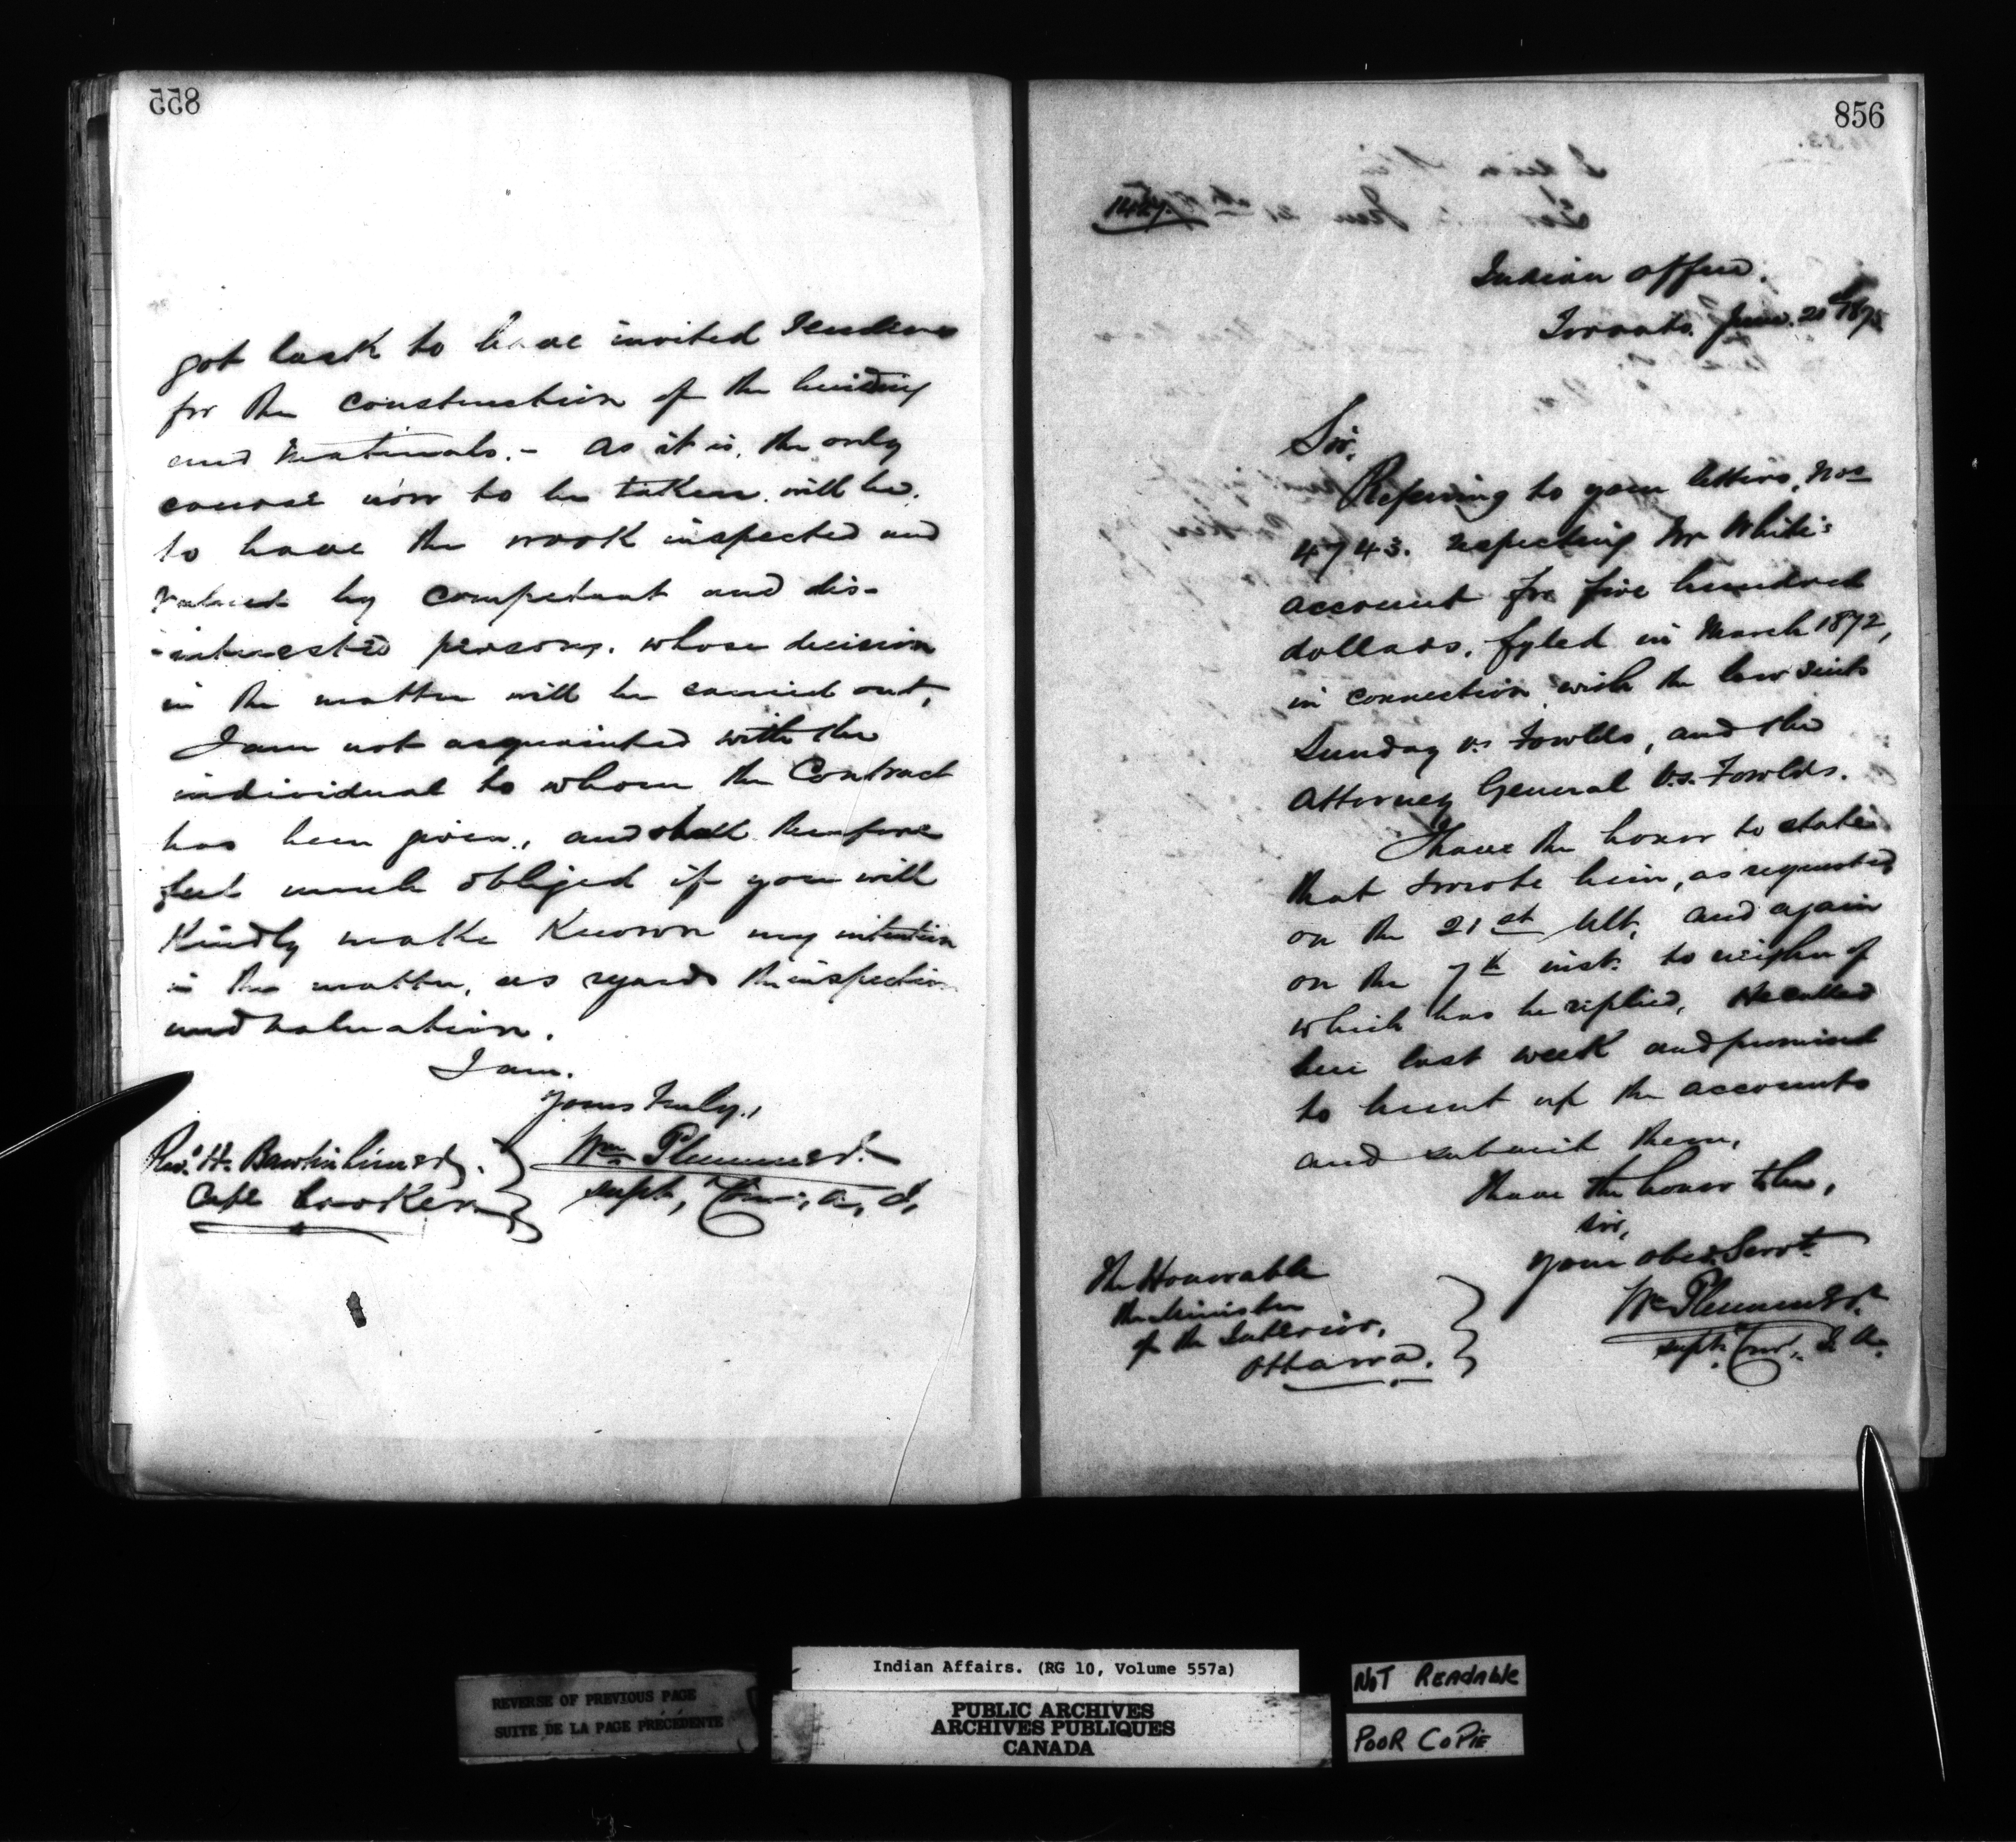 855
got back to have invited Tenders
for the construction of the building
and Materials. - As it is, the only
course now to be taken will be,
to have the work inspected and
valued by competent and dis-
-interested persons, whose decision
in the matter will be carried out,
I am not acquainted with the
individual to whom the Contract
has been given, and shall therefore
feel much obliged if you will
Kindly make Known my intention
in the matter, as regards the inspection
and valuation.
I am,
yours truly,
Wm Plummer
Supt,
Revd H.
Cape Croker
856
Indian Office.
Toronto. 187
Sir,
Referring to your letters, Nos
4743. respecting Mr White's
account for five hundred
dollars, fyled in March 1872,
in connection with the law suits
Sunday vs Fowlds, and the
Attorney General Vs. Fowlds.
I have the honor to state
that I wrote him, as requested
on the 21st Ult, and again
on the 7th inst. to neither of
which has he replied, He called
here last week and promised
to hunt up the accounts
and submit them,
I have the honor to be,
Sir,
your obed. Servt
Wm Plummer
Supt. I. A.
The Honorable
the Minister
of the Interior,
Ottawa.
REVERSE OF PREVIOUS PAGE
SUITE DE LA PAGE PRÉCÉDENTE
Indian Affairs. (RG 10, Volume 557a)
PUBLIC ARCHIVES
ARCHIVES PUBLIQUES
CANADA
NOT READABLE
POOR COPIE